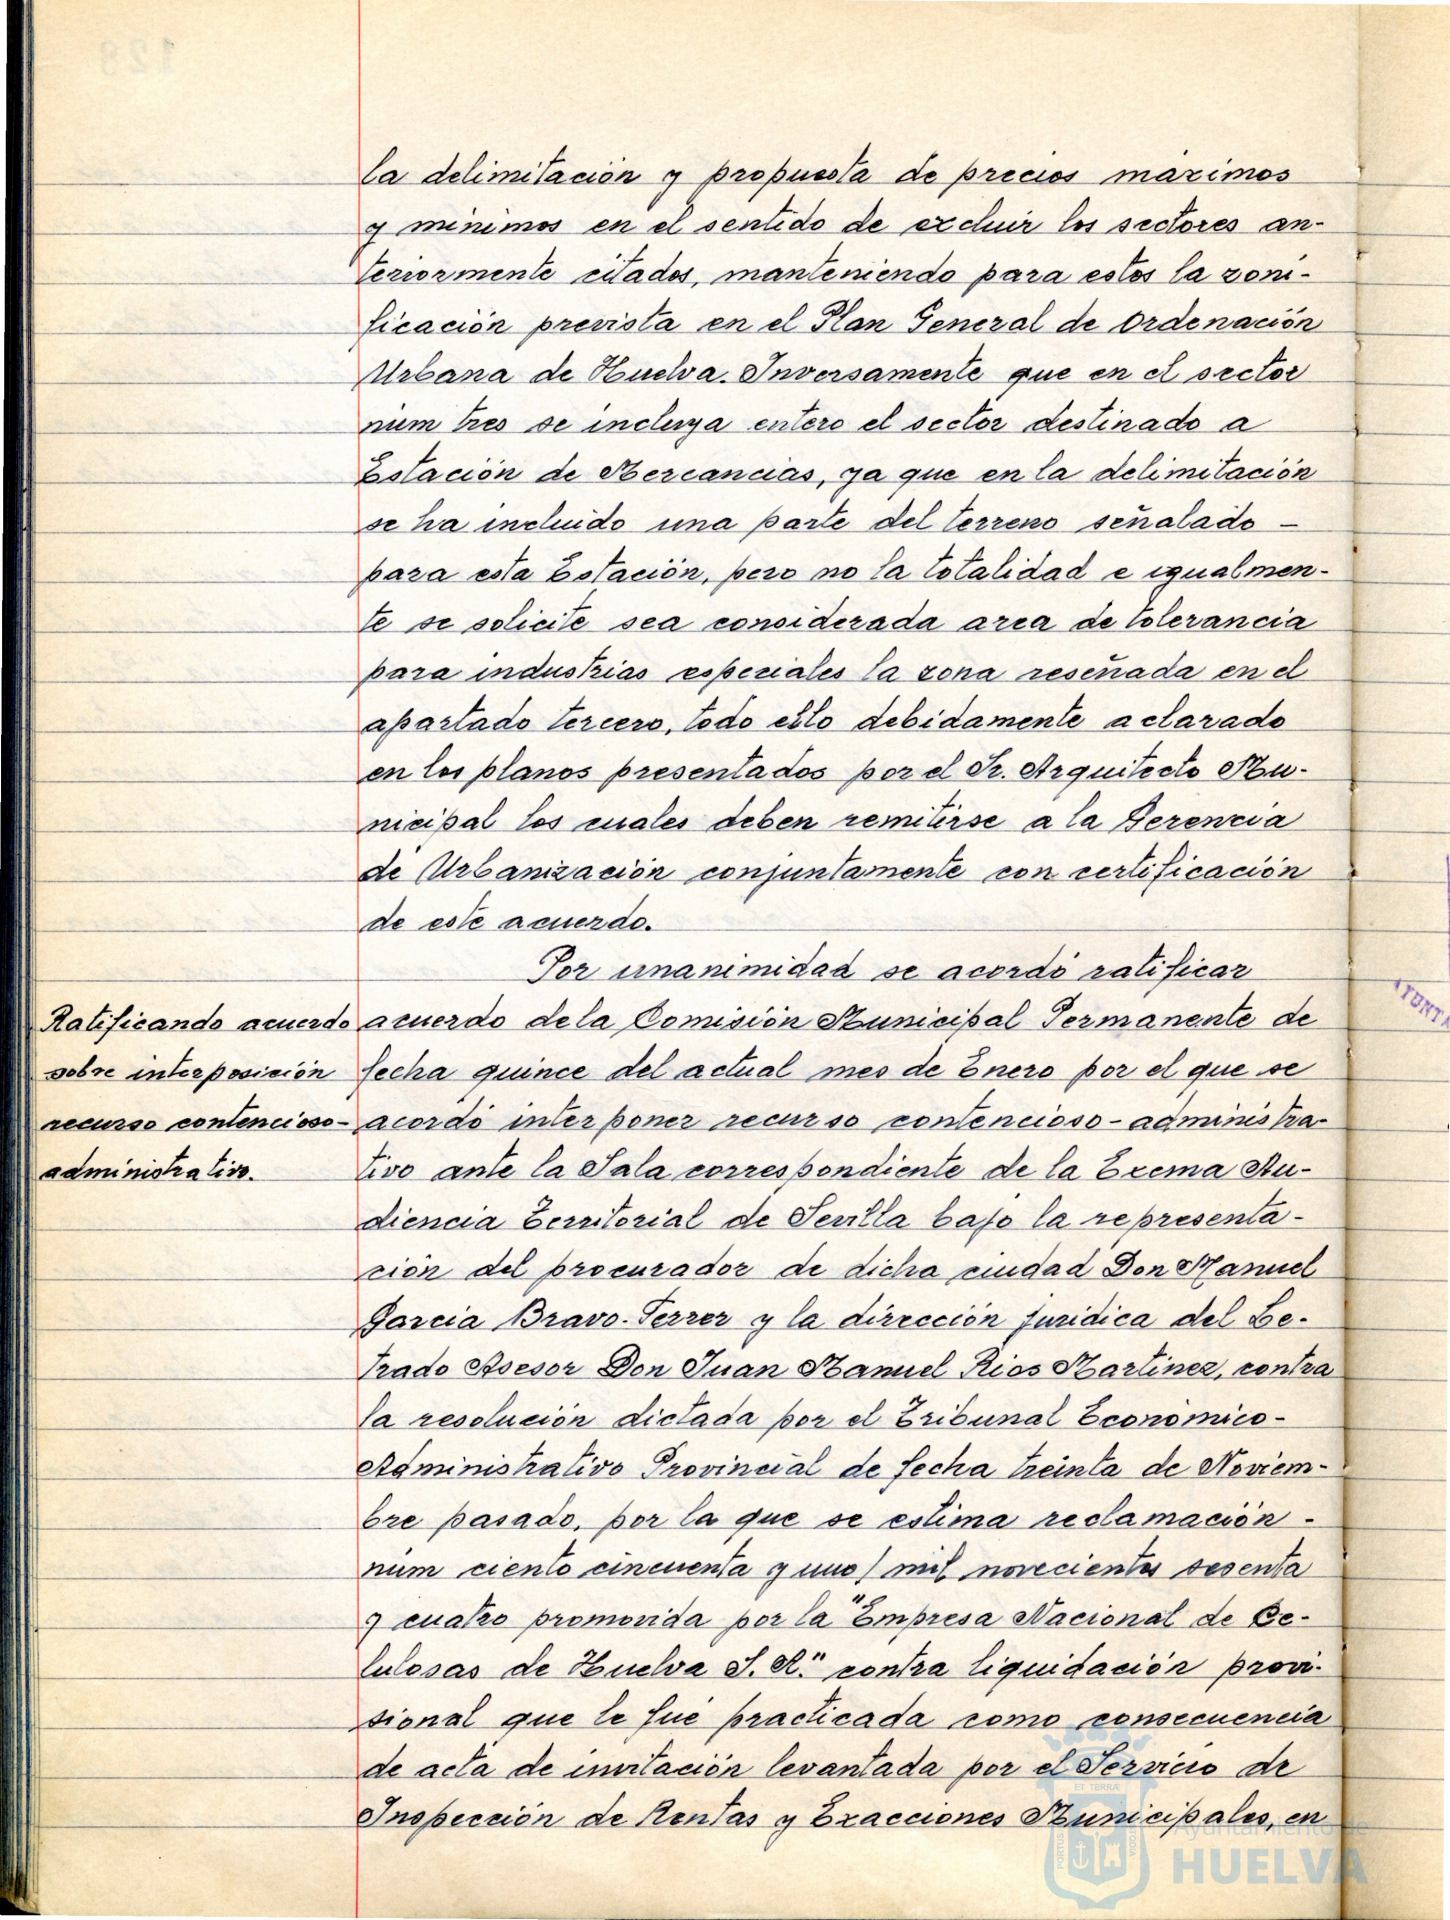 la delimitación y propuesta de precios maximos
y minimos en el sentido de excluir los sectores an-
teriormente citados, manteniendo para estos la zoni-
ficación prevista en el Plan General de Ordenación
Urbana de Huelva. Inversamente que en el sector
núm tres se incluya entero el sector destinado a
Estación de Mercancias, ya que en la delimitación
se ha incluido una parte del terreno señalado -
para esta Estación, pero no la totalidad e igualmen-
te se solicite sea considerada area de tolerancia
para industrias especiales la zona reseñada en el
apartado tercero, todo ello debidamente aclarado
en los planos presentados por el Sr. Arquitecto Mu-
nicipal los cuales deben remitirse a la Gerencia
de Urbanización conjuntamente con certificación
de este acuerdo.
Por unanimidad se acordó ratificar
Ratificando acuerdo
sobre interposición
recurso contencioso-
administrativo.
acuerdo de la Comisión Municipal Permanente de
fecha quince del actual mes de Enero por el que se
acordó interponer recurso contencioso-administra-
tivo ante la Sala correspondiente de la Excma Au-
diencia Territorial de Sevilla bajo la representa-
ción del procurador de dicha ciudad Don Manuel
Garcia Bravo-Ferrer y la dirección juridica del Le-
trado Asesor Don Juan Manuel Rios Martinez, contra
la resolución dictada por el Tribunal Económico-
Administrativo Provincial de fecha treinta de Noviem-
bre pasado, por la que se estima reclamación -
núm ciento cincuenta y uno/ mil novecientos sesenta
y cuatro promovida por la "Empresa Nacional de Ce-
lulosas de Huelva S. A." contra liquidación provi-
sional que le fué practicada como consecuencia
de acta de invitación levantada por el Servicio de
Inspección de Rentas y Exacciones Municipales, en
Ayuntamiento de
HUELVA